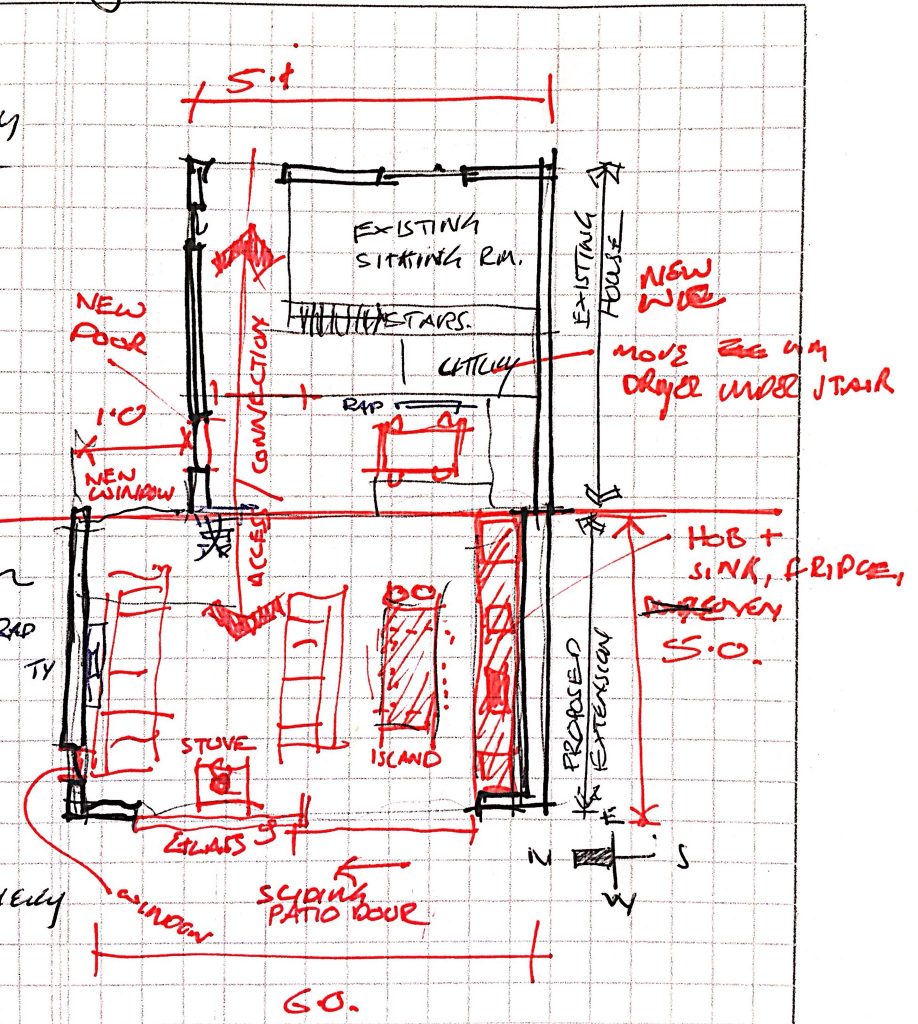 5.1
EXISTING
SITTING RM.
STAIRS.
EXISTING
HOUSE
NEW
MOVE
DRYER UNDER STAIR
NEW
DOOR
1.0
NEW
WINDOW
RAD
ACCESS/CONNECTION
HOB +
SINK, FRIDGE,
OVEN
5.0.
RAD
TV
PROPOSED
EXTENSION
STOVE
ISLAND
GLASS
SLIDING
PATIO DOOR
WINDOW
E
N
S
W
6.0.